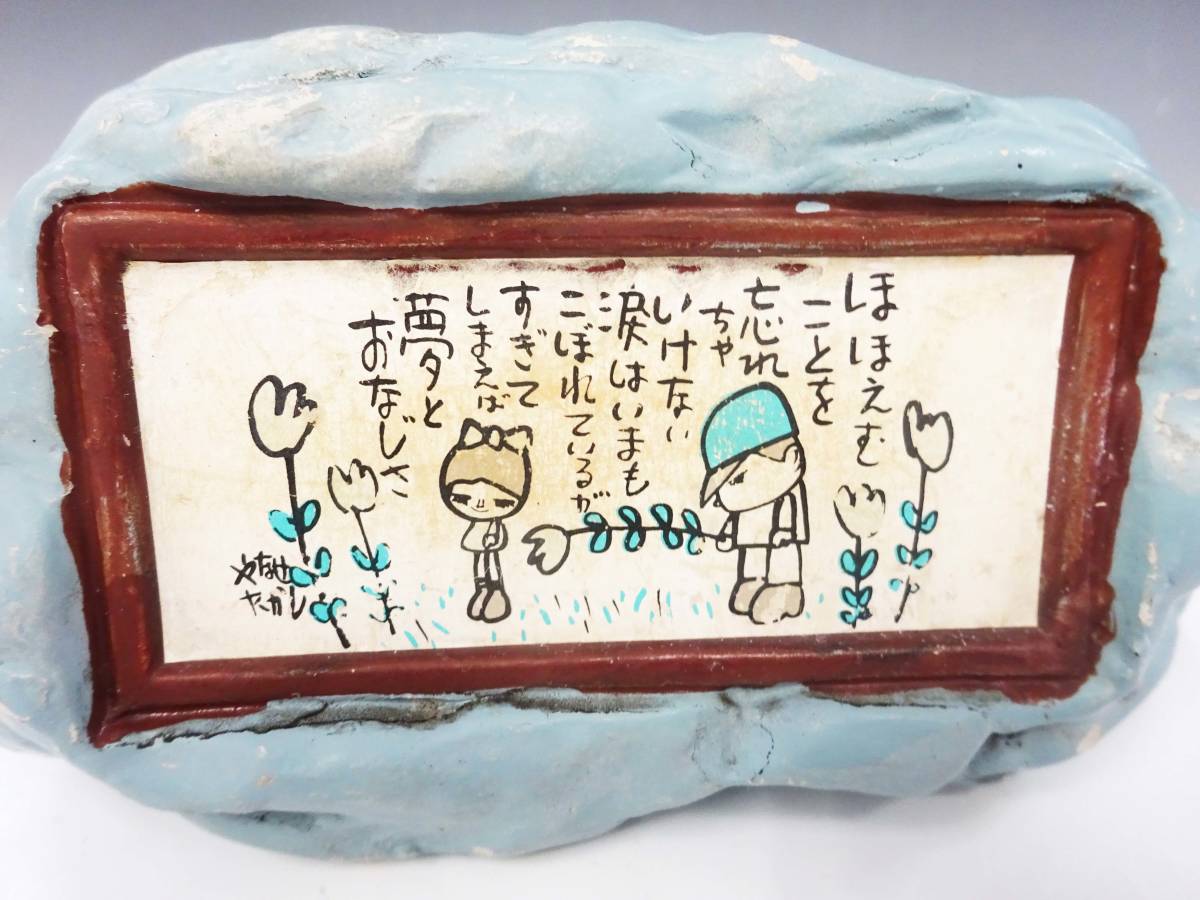 ほほえむ
ことを
忘れ
ちゃ
いけない
涙はいまも
こぼれているが
すぎて
しまえば
夢と
おなじさ
やなせ
たかし